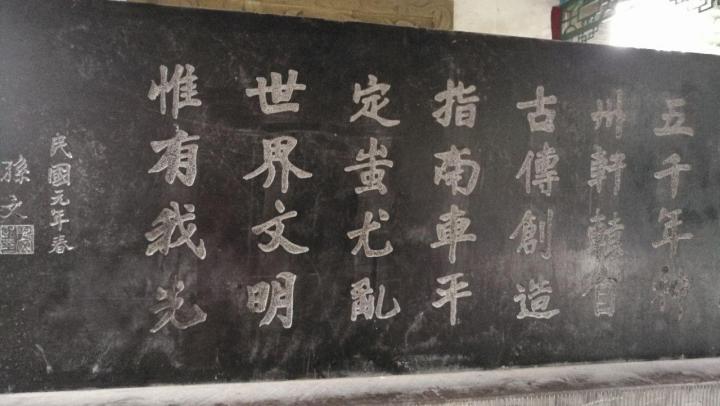 五千年神
州軒轅自
古傳創造
指南車平
定蚩尤亂
世界文明
惟有我光
民國元年春
孫文